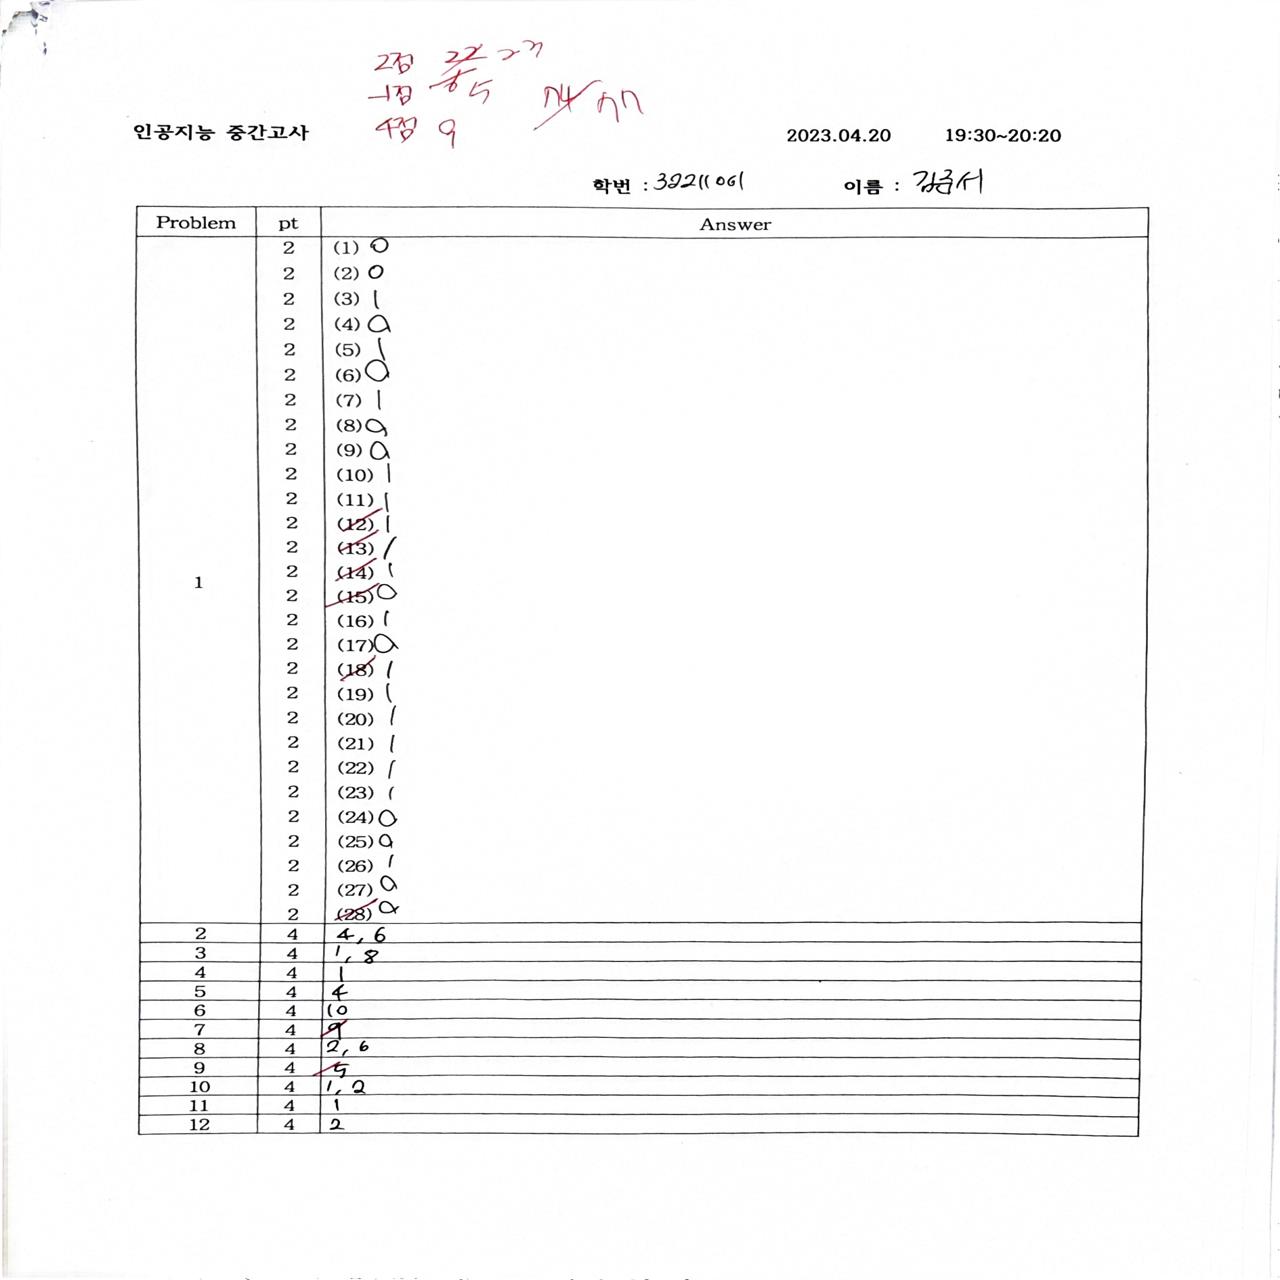 2점 22 23
-1점 6 5 74 77
4점 9
인공지능 중간고사 2023.04.20 19:30~20:20
학번 : 32211061 이름 : 김준서
Problem pt Answer
2 (1) 0
2 (2) 0
2 (3) 1
2 (4) 0
2 (5) 1
2 (6) 0
2 (7) 1
2 (8) 0
2 (9) 0
2 (10) 1
2 (11) 1
2 (12) 1
2 (13) 1
1 2 (14) 1
2 (15) 0
2 (16) 1
2 (17) 0
2 (18) 1
2 (19) 1
2 (20) 1
2 (21) 1
2 (22) 1
2 (23) 1
2 (24) 0
2 (25) 0
2 (26) 1
2 (27) 0
2 (28) 0
2 4 4, 6
3 4 1, 8
4 4 1
5 4 4
6 4 10
7 4 9
8 4 2, 6
9 4 5
10 4 1, 2
11 4 1
12 4 2